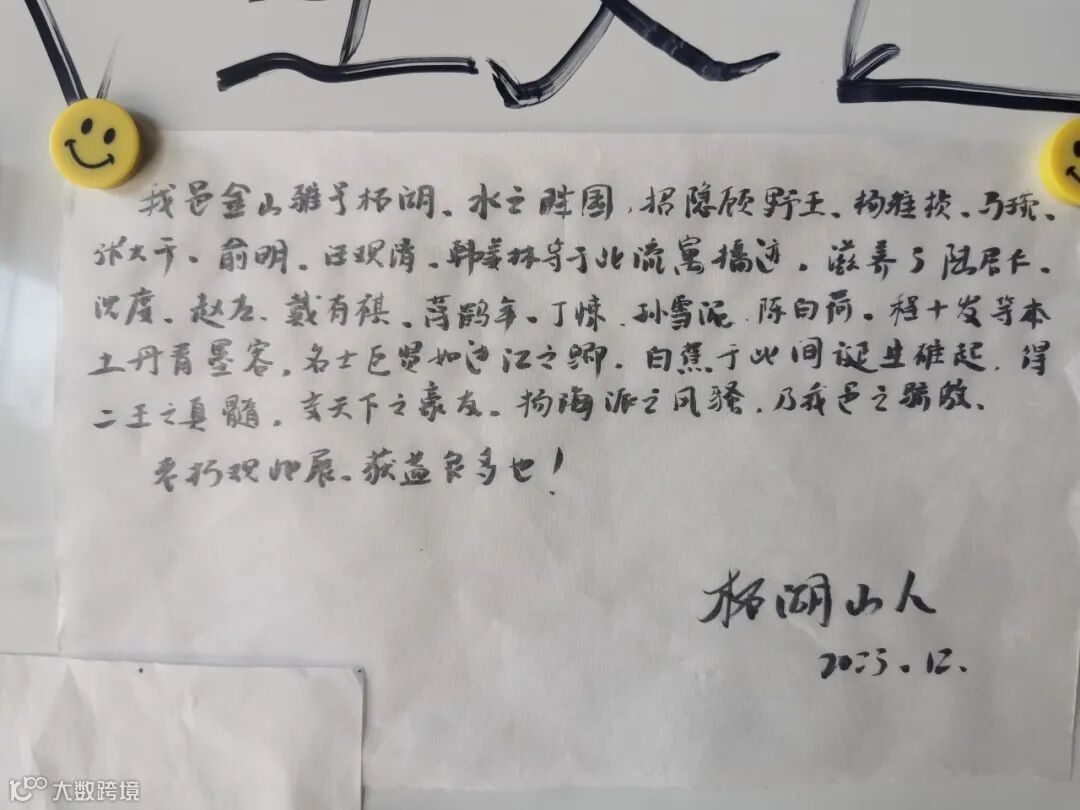 我邑金山雅号柘湖、水之胜国,招隐顾野王、杨维桢、马琬、
张大千、俞明、汪观清、韩美林等于此流寓播迹。滋养了陆居仁、
沈度、赵左、戴有祺、蒋鹤年、丁悚、孙雪泥、陈白荷、程十发等本
土丹青墨客,名士巨贤如过江之鲫。白蕉于此间诞生雄起,得
二王之真髓,交天下之豪友。扬海派之风骚,乃我邑之骄傲、
老朽观此展、获益良多也!
柘湖山人
2023.12.
大数跨境